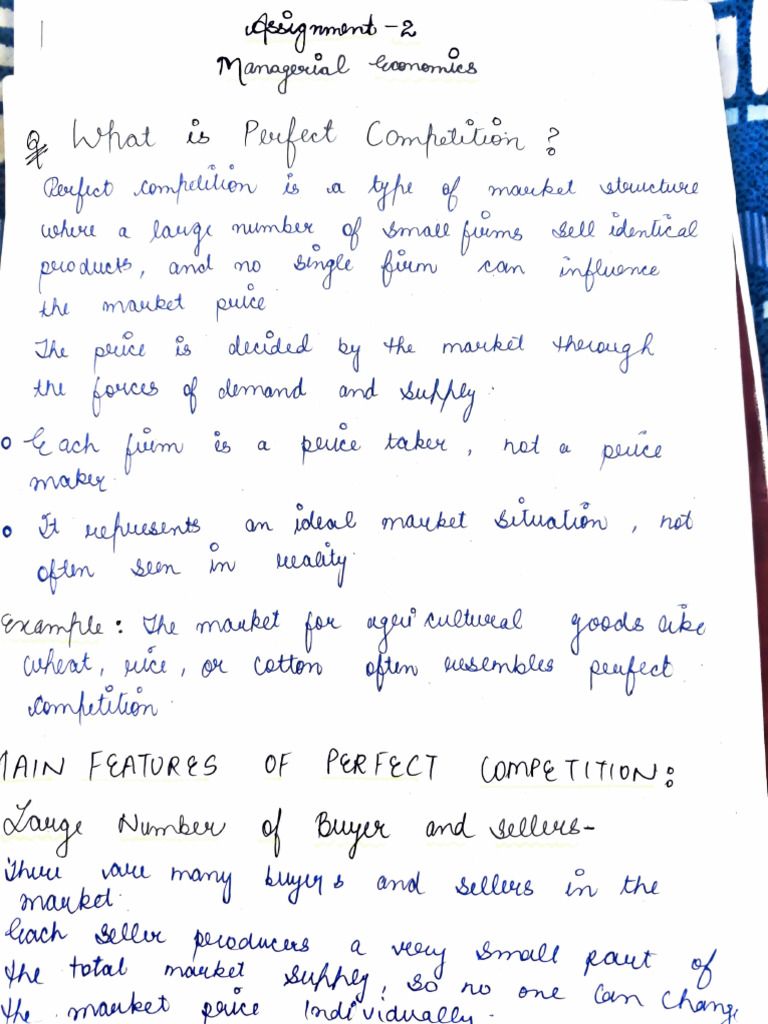 Assignment-2
Managerial Economics
Q What is Perfect Competition ?
Perfect competition is a type of market structure
where a large number of small firms sell identical
products, and no single firm can influence
the market price
The price is decided by the market therough
the forces of demand and supply.
Each firm is a price taker, not a price
maker.
It represents an ideal market situation, not
often seen in reality.
Example: The market for agricultural goods like
wheat, rice, or cotton often resembles perfect
competition.
MAIN FEATURES OF PERFECT COMPETITION:
Large Number of Buyer and sellers-
There are many buyers and sellers in the
market.
Each seller producers a very small part of
the total market supply, so no one can change
the market price individually.